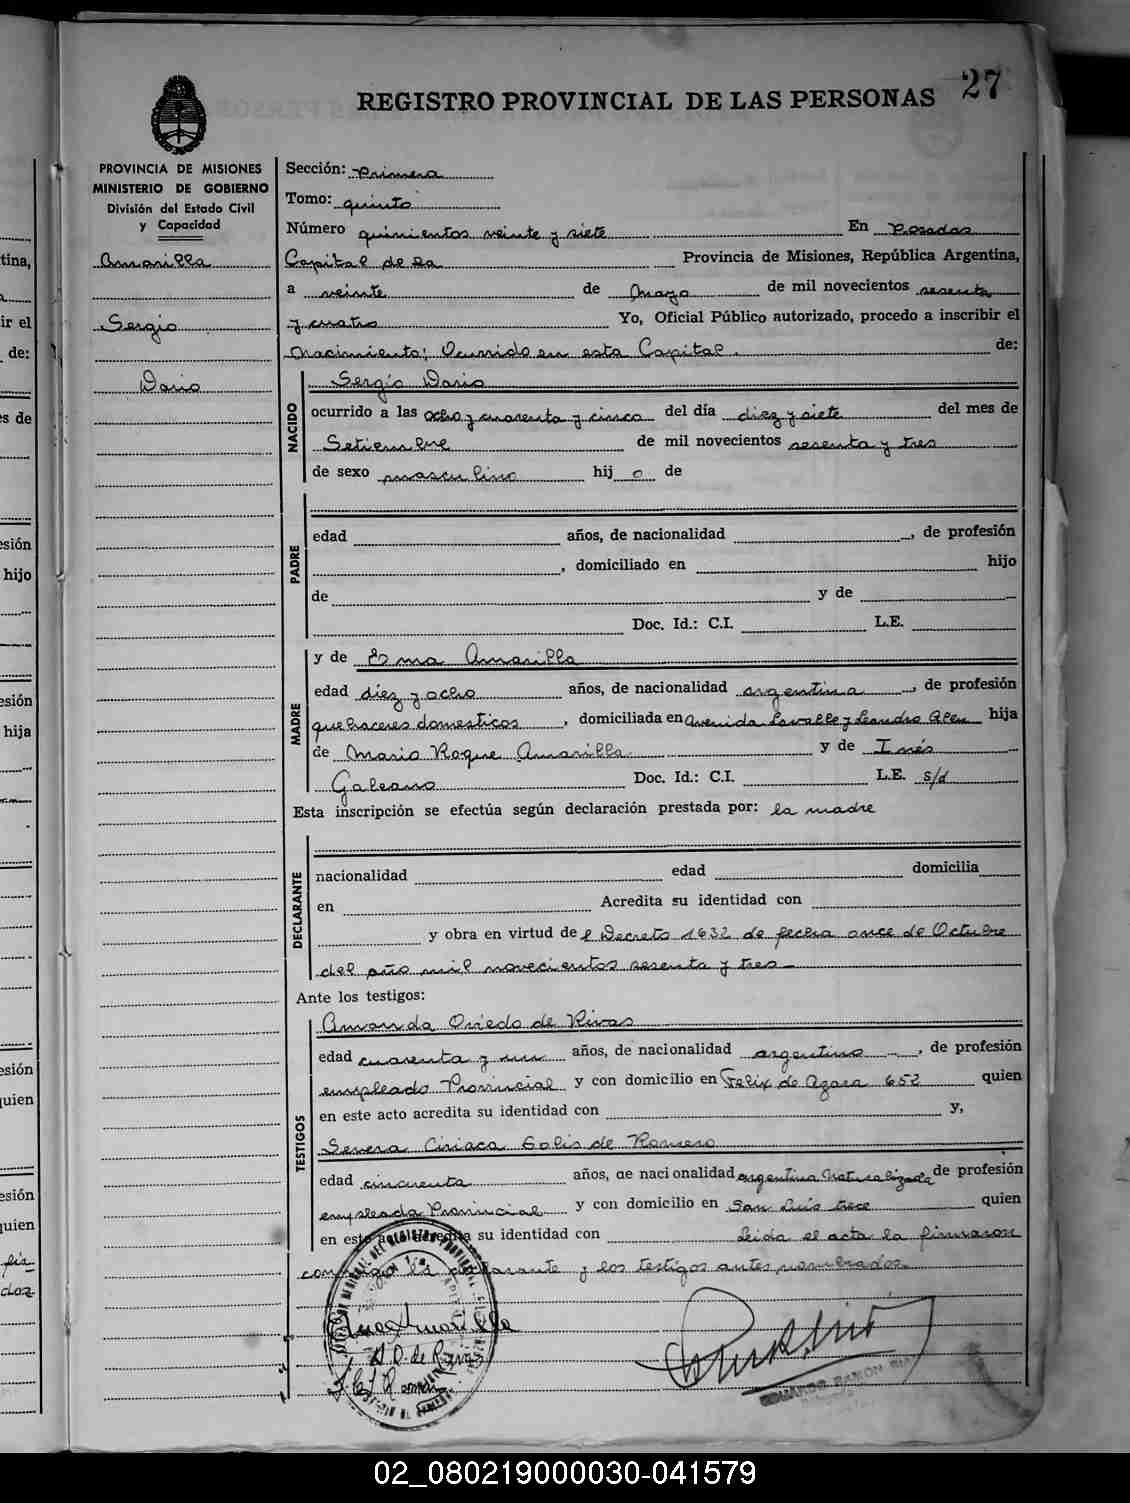 27
REGISTRO PROVINCIAL DE LAS PERSONAS
PROVINCIA DE MISIONES
MINISTERIO DE GOBIERNO
División del Estado Civil
y Capacidad
Amarilla
Sergio
Dario
Sección: Primera
Tomo: quinto
Número quinientos veinte y siete En Posadas
Capital de la Provincia de Misiones, República Argentina,
a veinte de Mayo de mil novecientos sesenta
y cuatro Yo, Oficial Público autorizado, procedo a inscribir el
Nacimiento; Ocurrido en esta Capital. de:
NACIDO
Sergio Dario
ocurrido a las ocho y cuarenta y cinco del día diez y siete del mes de
Setiembre de mil novecientos sesenta y tres
de sexo masculino hij o de
PADRE
edad años, de nacionalidad , de profesión
, domiciliado en hijo
de y de
Doc. Id.: C.I. L.E.
MADRE
y de Esma Amarilla
edad diez y ocho años, de nacionalidad argentina , de profesión
quehaceres domesticos , domiciliada en Avenida Lavalle y Leandro Alem hija
de Mario Roque Amarilla y de Inés
Galeano Doc. Id.: C.I. L.E. s/d
Esta inscripción se efectúa según declaración prestada por: la madre
DECLARANTE
nacionalidad edad domicilia
en Acredita su identidad con
y obra en virtud de l Decreto 1632 de fecha once de Octubre
del año mil novecientos sesenta y tres
Ante los testigos:
TESTIGOS
Amanda Oviedo de Rivas
edad cuarenta y un años, de nacionalidad argentino , de profesión
empleado Provincial y con domicilio en Felix de Azara 652 quien
en este acto acredita su identidad con y,
Severa Ciriaca Solis de Romero
edad cincuenta años, de nacionalidad argentina Naturalizada de profesión
empleada Provincial y con domicilio en San Luís trece quien
en este acto acredita su identidad con Leida el acta la firmaron
conmigo la declarante y los testigos antes nombrados.
Amarilla
A. O. de Rivas
EDUARDO RAMON
tina,
ir el
de:
s de
esión
hijo
esión
hija
esión
quien
esión
quien
02_080219000030-041579